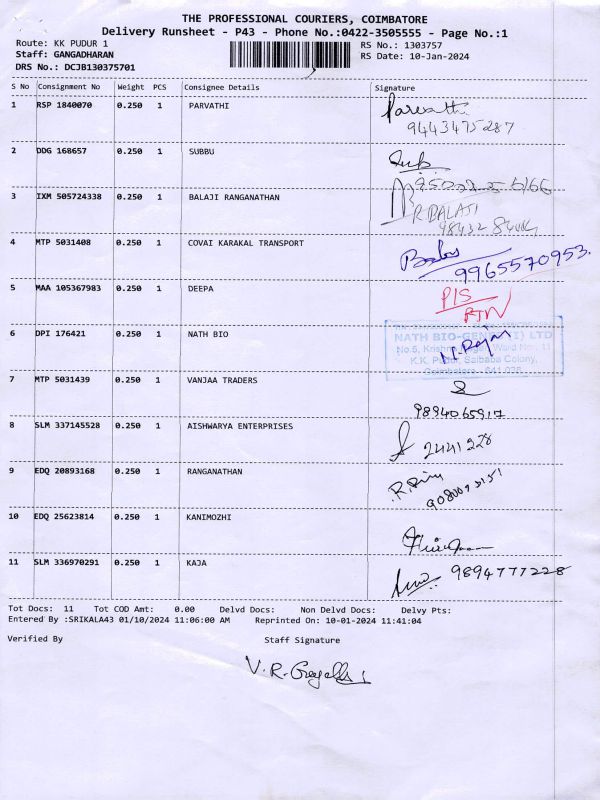 THE PROFESSIONAL COURIERS, COIMBATORE
Delivery Runsheet - P43 - Phone No.:0422-3505555 - Page No.:1
Route: KK PUDUR 1 RS No.: 1303757
Staff: GANGADHARAN RS Date: 10-Jan-2024
DRS No.: DCJB130375701
S No Consignment No Weight PCS Consignee Details Signature
1 RSP 1840070 0.250 1 PARVATHI Parvathi
9443475287
2 DDG 168657 0.250 1 SUBBU Sub
3 IXM 505724338 0.250 1 BALAJI RANGANATHAN R BALAJI
98432
4 MTP 5031408 0.250 1 COVAI KARAKAL TRANSPORT
9965570953.
5 MAA 105367983 0.250 1 DEEPA PIS
RTN
6 DPI 176421 0.250 1 NATH BIO NATH BIO-GENES (I) LTD
No.5, Krishna Ward No. 11
K.K. Pudur Saibaba Colony,
Coimbatore - 641 038
7 MTP 5031439 0.250 1 VANJAA TRADERS
9894065917
8 SLM 337145528 0.250 1 AISHWARYA ENTERPRISES 2441228
9 EDQ 20893168 0.250 1 RANGANATHAN
10 EDQ 25623814 0.250 1 KANIMOZHI
11 SLM 336970291 0.250 1 KAJA 9894777228
Tot Docs: 11 Tot COD Amt: 0.00 Delvd Docs: Non Delvd Docs: Delvy Pts:
Entered By :SRIKALA43 01/10/2024 11:06:00 AM Reprinted On: 10-01-2024 11:41:04
Verified By Staff Signature
V. R.